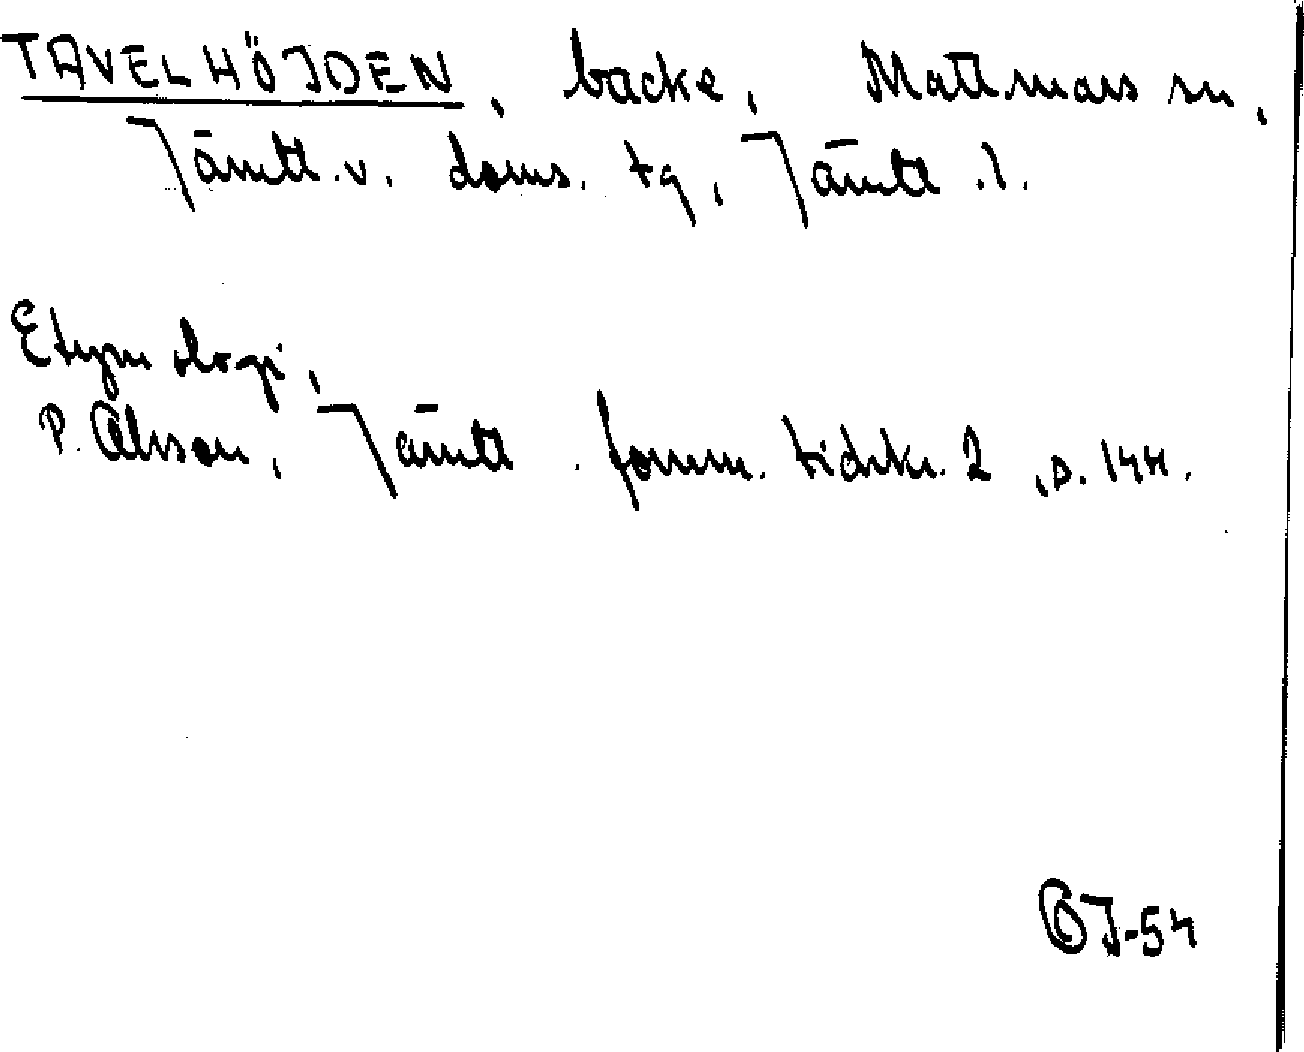 TAVELHÖJDEN, backe, Mattmars sn,
Jämtl. v. doms. tg, Jämtl. l.
Etymologi,
P. Olsson, Jämtl. fornm. tidskr. 2, s. 144.
OJ-54